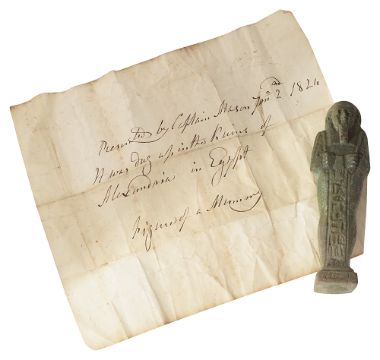 Presented by Captain Mason Jany 2nd 1824
It was dug up in the Ruins of
Alexandria in Egypt
figure of a Mummy